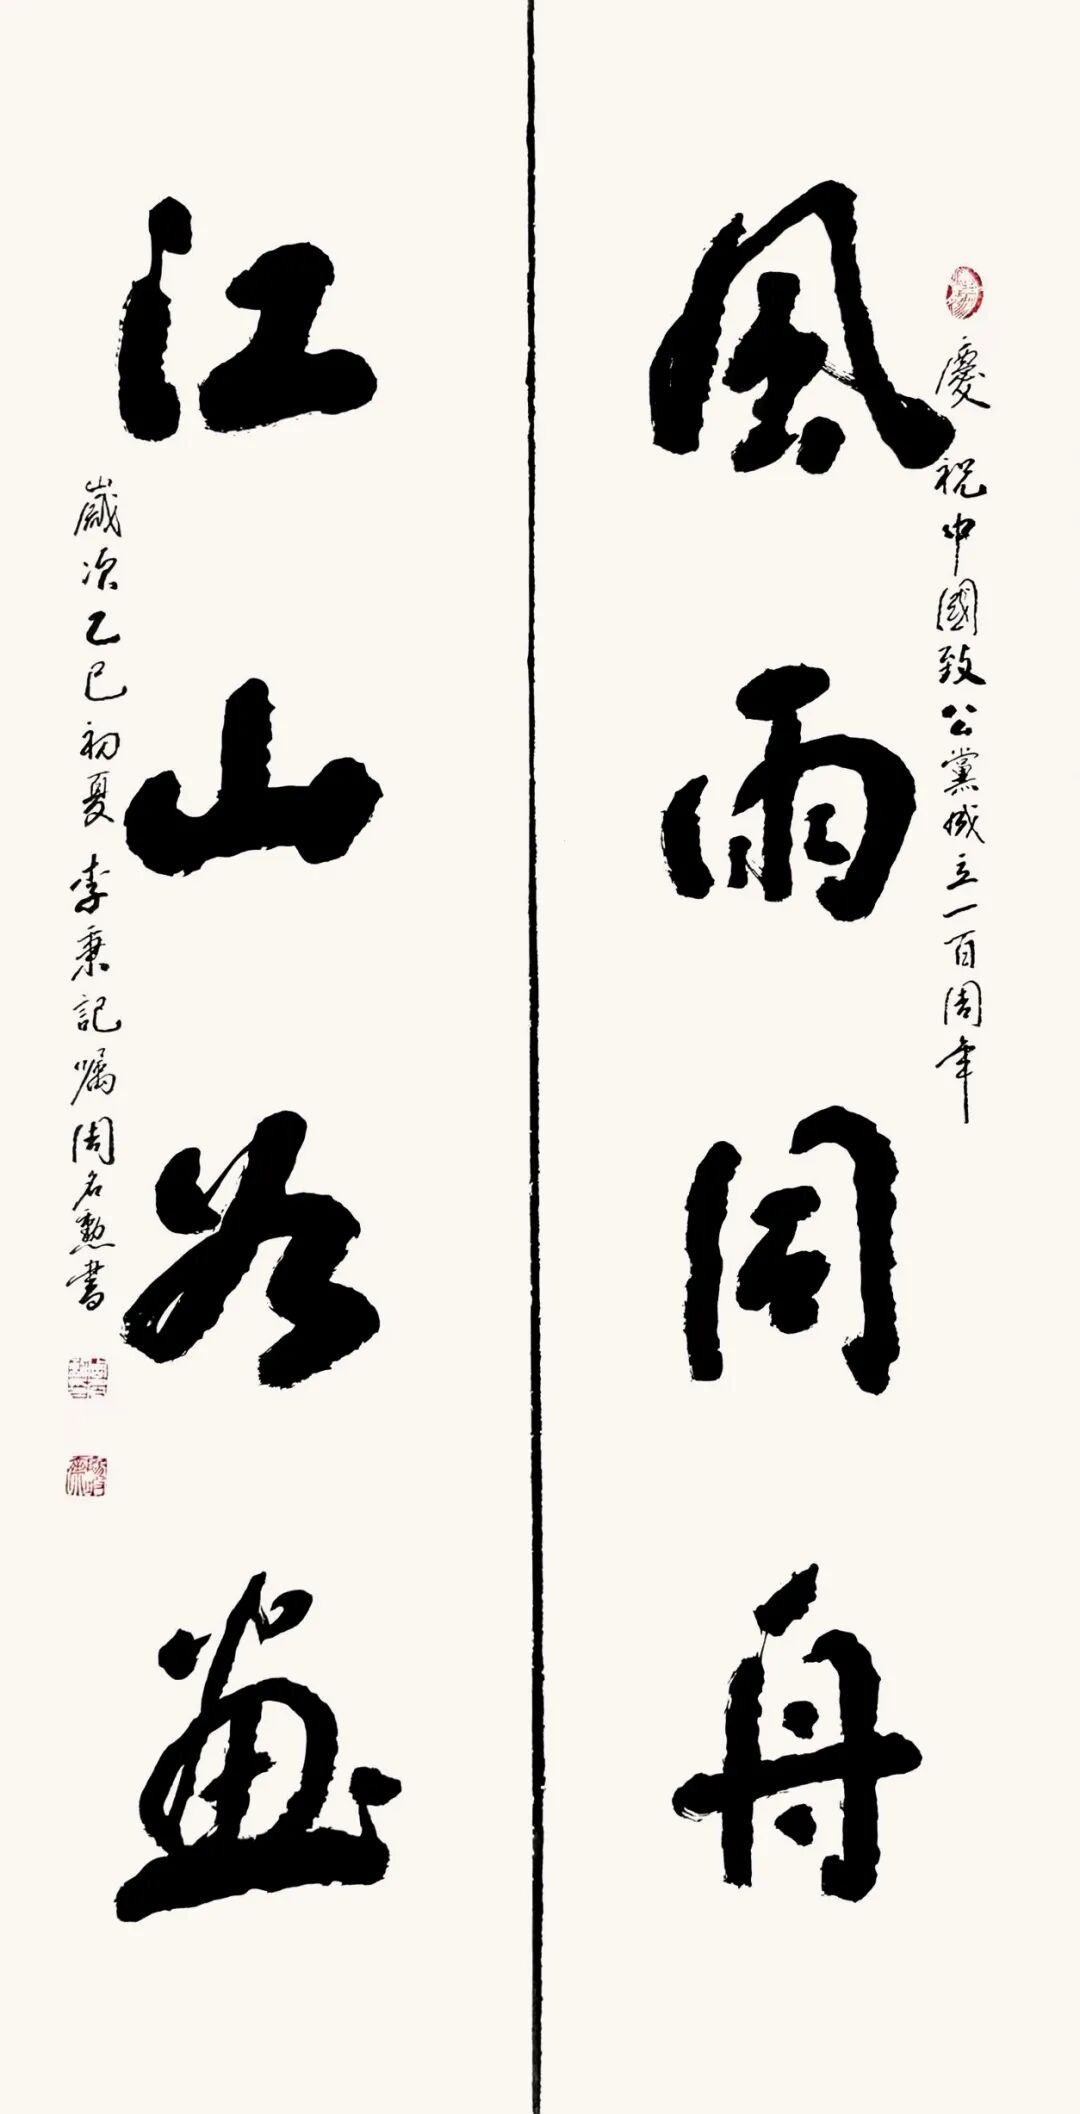 慶祝中國致公黨成立一百周年
風雨同舟
江山如畫
歲次乙巳初夏李秉記嘱周名勲書